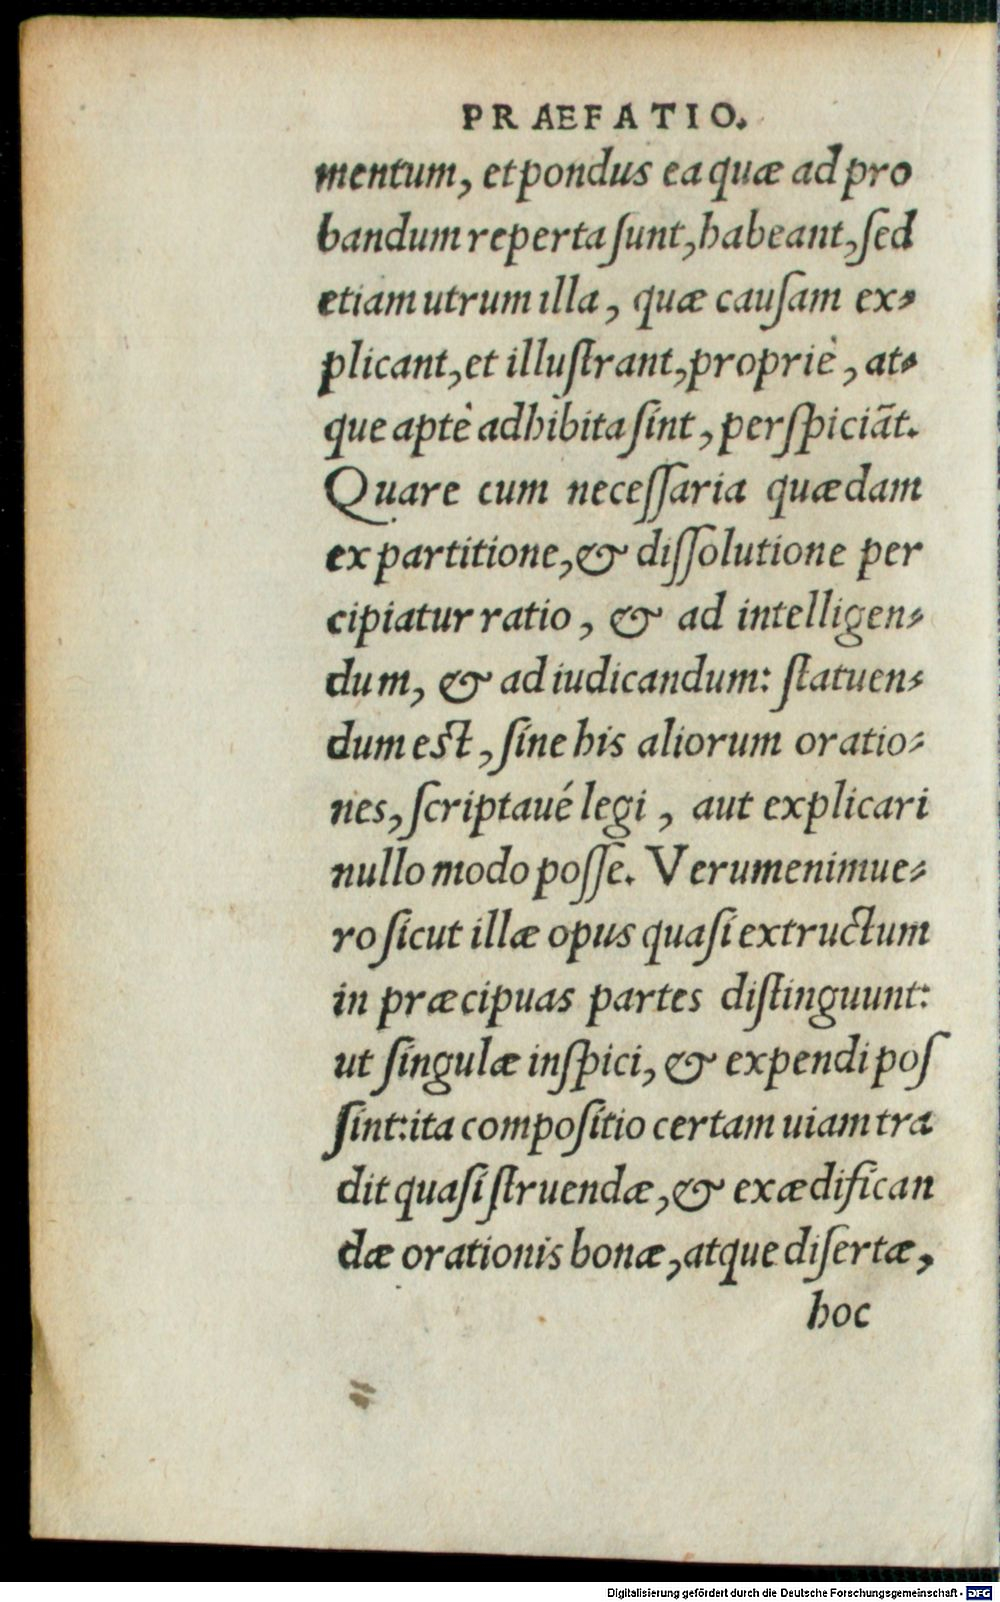 PRAEFATIO.
mentum, et pondus ea quæ ad pro
bandum reperta ſunt, habeant, ſed
etiam utrum illa, quæ cauſam ex⸗
plicant, et illuſtrant, propriè, at⸗
que aptè adhibita ſint, perſpiciãt.
Quare cum neceſſaria quædam
ex partitione, & diſſolutione per
cipiatur ratio, & ad intelligen⸗
dum, & ad iudicandum: ſtatuen⸗
dum est, ſine his aliorum oratio⸗
nes, ſcriptaué legi, aut explicari
nullo modo poſſe. Verumenimue⸗
ro ſicut illæ opus quaſi extructum
in præcipuas partes diſtinguunt:
ut ſingulæ inſpici, & expendi poſ
ſint: ita compoſitio certam uiam tra
dit quaſi ſtruendæ, & exædifican
dæ orationis bonæ, atque diſertæ,
hoc
Digitalisierung gefördert durch die Deutsche Forschungsgemeinschaft - DFG